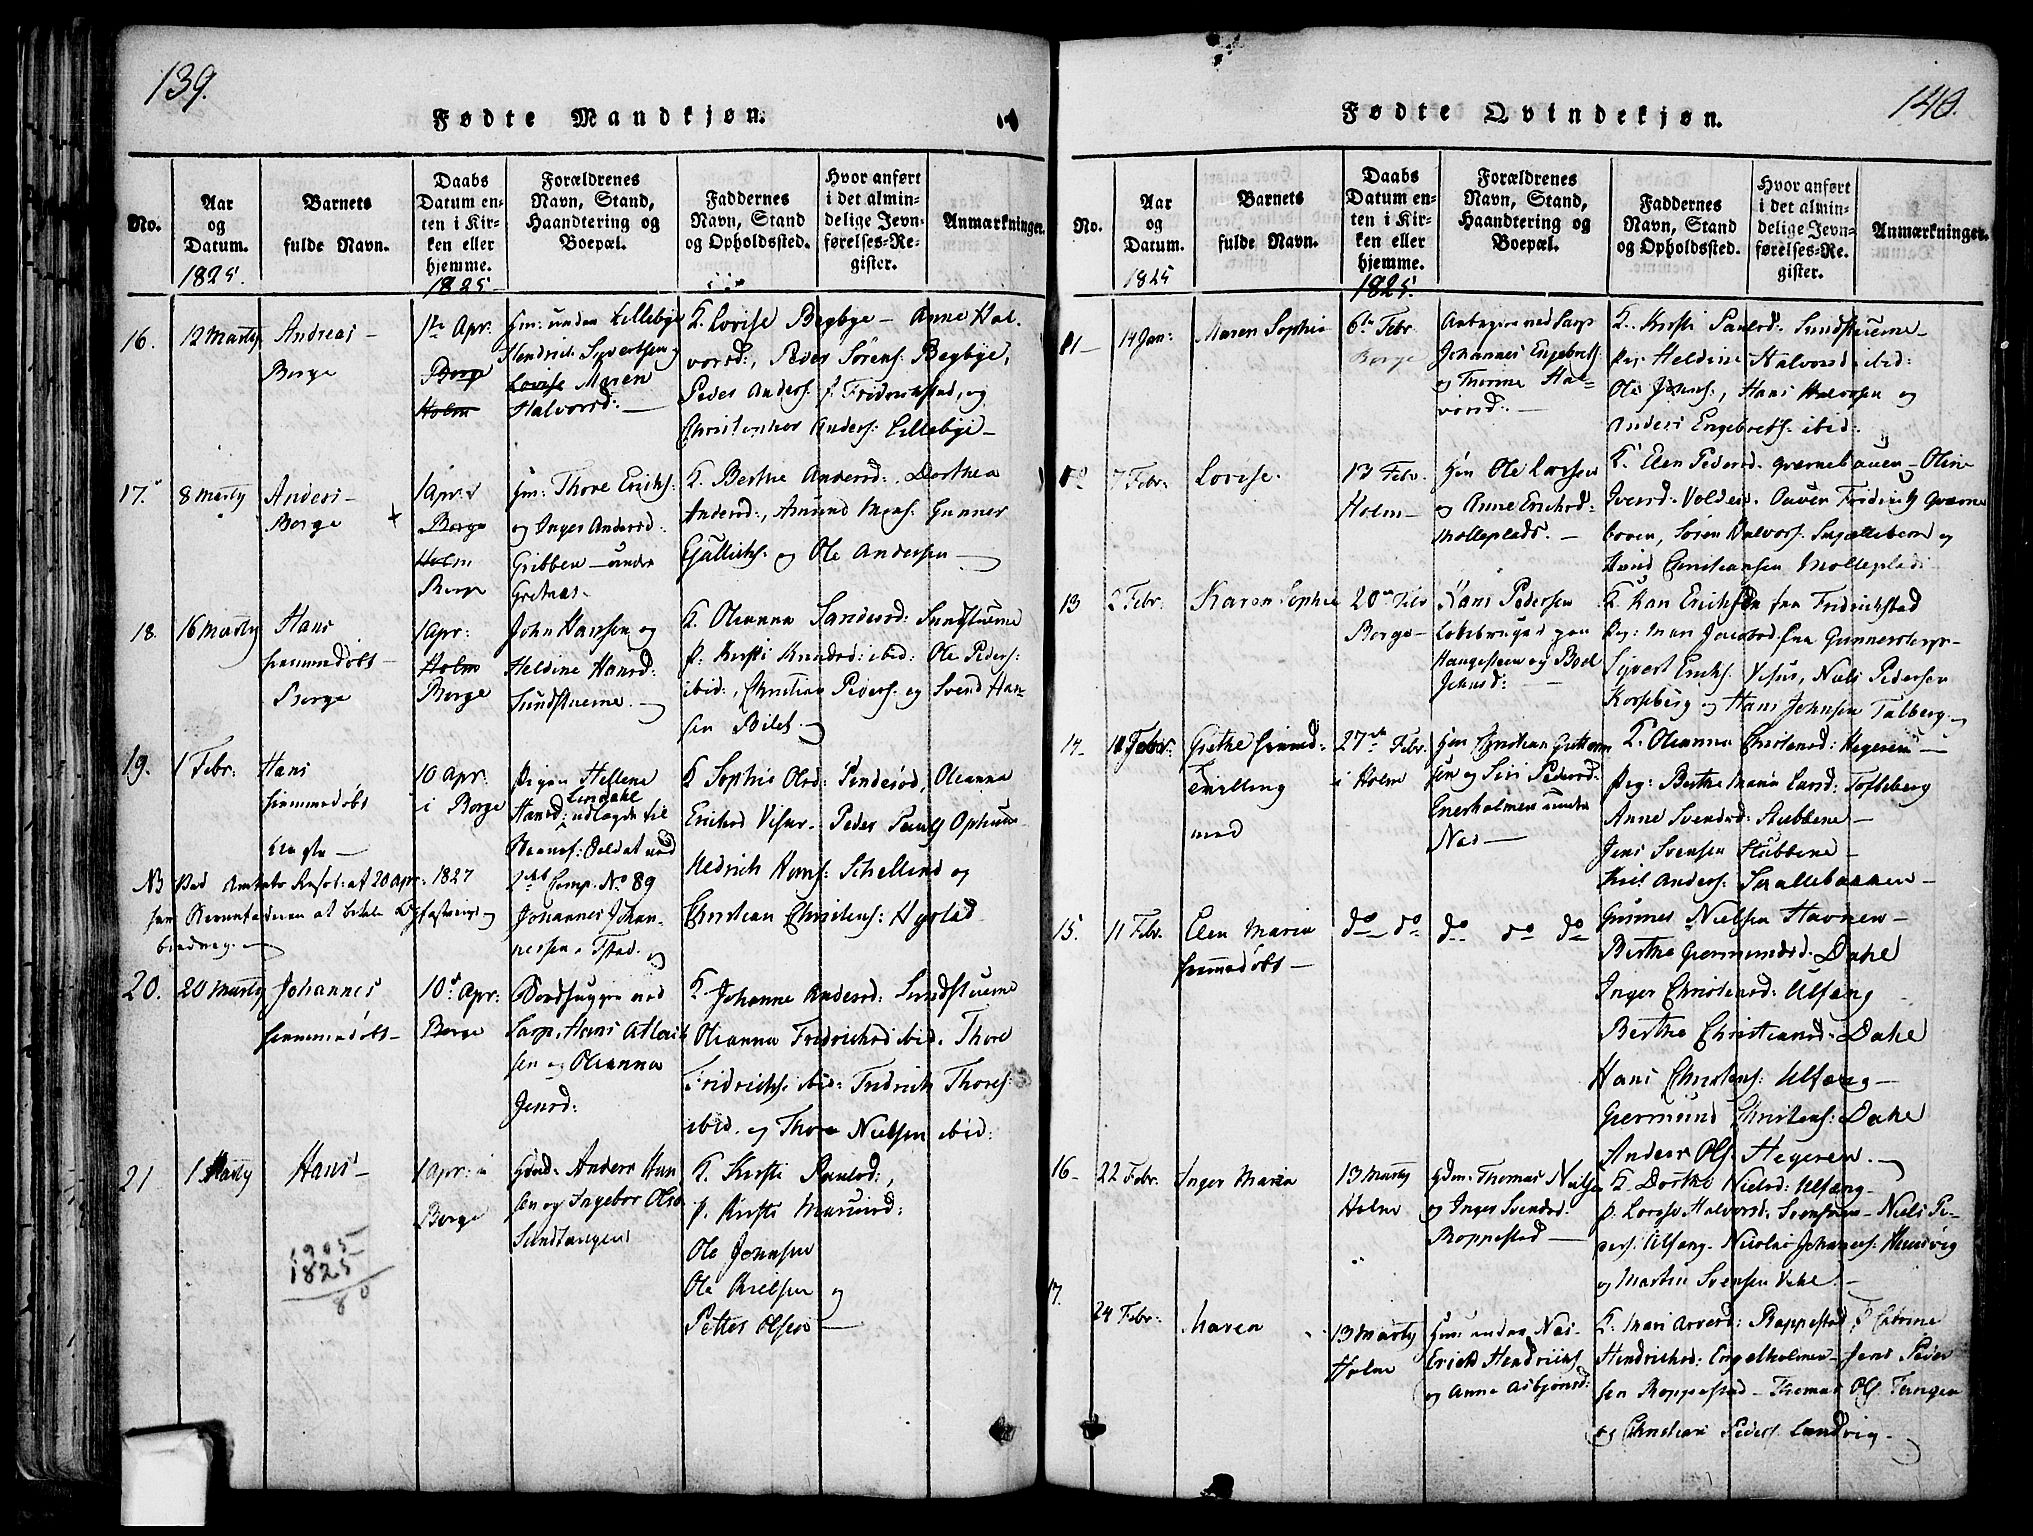 139.
Fødte Mandkjøn.
No.
Aar og Datum.
1825.
Barnets fulde Navn.
Daabs Datum enten i Kirken eller hjemme.
1825
Forældrenes Navn, Stand, Haandtering og Boepæl.
Faddernes Navn, Stand og Opholdssted.
Hvor anført i det almindelige Jevnførelses-Register.
Anmærkninger.
16.
12 Marty
Andreas –
Borge
1te Apr.
Borge
Holm
Gm: under Lillebye
Hendrick Syvertsen og
Lovise Maren
Halvorsd: —
F. Lovise Begbye – Anne Hal-
vorsd:, Peder Sörens: Begbye,
Peder Anders: f. Fridrichstad, og
Christopher Anders: Lillebye –
17.
8 Marty
Anders –
Borge
1 Apr:
Borge
Holm
Borge
Gm: Thore Ericks:
og Inger Andersd:
Gribben – under
Gretnes –
F. Berthe Andersd: Dorthea
Andersd:, Amund Mons: Gunner
Gullichs: og Ole Andersen —
18.
16 Marty
Hans
hiemmedöbt –
Borge
1 Apr:
Holm
Borge
John Hansen og
Heldine Hansd:
Sundstuerne –
F. Oleanna Sandersd: Sundstuerne
P. Kirsti Knudsd: ibid: Ole Peders:
ibid:, Christian Peders: og Svend Han-
sen Bilet –
19.
1 Febr:
Hans
hiemmedöbt
10 Apr.
i Borge
Pigen Hellene
Hansd: Lindahl udlagde til
Barnef: Soldat ved
2det Comp. No 89
Johannes Johan-
nessen
F. Sophie Olsd: Pindesöd, Oleanna
Ericksd Visur – Peder Pauls Ophuus
Hedrich Hans: Schellind og
Christian Christens: Hystad
NB Ved Amtets Resol: af 20 Apr: 1827
20.
20 Marty
Johannes
hiemmedöbt –
10de Apr:
Borge
Bordhugger ved
Sarp, Hans Atlack
sen og Oleanna
Jensd:
F. Johanne Andersd: Sundstuerne
Oleanna Fredrichsd ibid. Thore
Fridrichs: ibid: Fridrich Thores:
ibid. og Thore Nielsen ibid:
21
1 Marty
Hans –
1 Apr: i
Borge
Gbd: Anders Han
sen og Ingebor Olsd
Sundtangen
F. Kirsti Paulsd:,
P. Kirsti Mariusd:
Ole Johnsen
Ole Nielsen og
Petter Olsen —
1905
1825
80
140.
Fødte Qvindekjøn.
No.
Aar og Datum.
1825
Barnets fulde Navn.
Daabs Datum enten i Kirken eller hjemme.
1825.
Forældrenes Navn, Stand, Haandtering og Boepæl.
Faddernes Navn, Stand og Opholdssted.
Hvor anført i det almindelige Jevnførelses-Register.
Anmærkninger.
11 –
14 Jan:
Maren Sophie
6te Febr
Borge
Arbeider ved Sarp
Johannes Engebrets:
og Thorine Hal-
vorsd: —
F. Kirsti Paulsd: Sundstuerne –
Pig: Heldine Halvorsd ibid:
Ole Jens:, Hans Halvorsen og
Anders Engebrets: ibid:
12
7 Febr.
Lovise.
13 Febr.
Holm –
Gm Ole Larssen
og Anne Ericksd:
Mölleplads. –
F. Elen Pedersd. Qværnebauen – Oline
Iversd: Volden. Fridrich Qværne
boven, Sören Halvors: og
Christiansen Mölleplads
13
2 Febr:
Karen Sophie
20de Febr
Borge –
Hans Pedersen
Haugesteen og Bodl
Johnsd: —
F. Kari Ericksen fra Fridrichstad
Pig: Mari Jacobsd: fra Gunnerstorp –
Syvert Ericks. Visur, Niels Pedersen
Korsberg og Hans Johnsen Talberg.
14 –
11 Febr.
Grethe hiemmed:
Tvilling
med
27de Febr.
i Holm
Gm Christian Guttorm
sen og Siri Pedersd.
Enesholmen under
Næs —
F. Oleanna Christensd: Hegeren —
Pig: Berthe Maria Larsd: Tofteberg
Anne Svendsd: Stubbene –
Jens Svensen Stubbene –
Niels Anders: Smallebakken –
15.
11 Febr.
Elen Maria
hiemmedöbt –
do do
do do do
Gunner Nielsen Havnen –
Berthe Germundsd. Dahle
Inger Christensd: Ulfæng
Berthe Christiansd. Dahle
Hans Christens: Ulfæng –
Germund Christens: Dahle
Anders Ols: Hegeren –
16 –
22 Febr.
Inger Maria
13 Marty
Holm
Gdm: Thomas Nielsen
og Inger Svendsd.
Roppestad —
F. Dorthe Nielsd: Ulfæng –
P. Lovise Halvorsd. – Niels Pe-
ders: Ulfæng. Nicolai Johanns:
og Martin Svensen Dahle –
17.
24 Febr.
Maren
13 Marty
Holm
Gm: under Næs –
Erick Hendricks
og Anne Asbjönsd:
F. Mari Arvesd: Roppestad, P. Cathrine
Hendrichsd: Engelholmen – Jens Peder
sen Roppestad – Thomas Ols. Tangen
og Christian Peders: Sandvig –